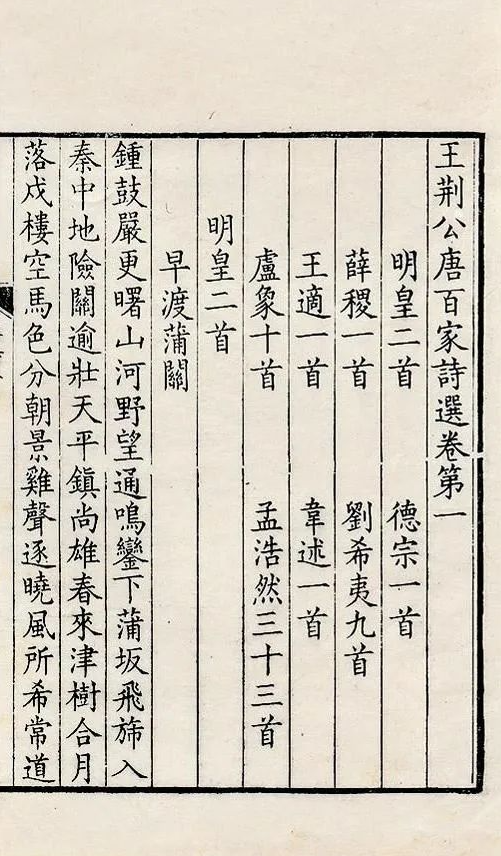 王荆公唐百家詩選卷第一
明皇二首　德宗一首
薛稷一首　劉希夷九首
王適一首　韋述一首
盧象十首　孟浩然三十三首
明皇二首
早渡蒲關
鍾鼓嚴更曙山河野望通鳴鑾下蒲坂飛斾入
秦中地險關逾壯天平鎮尚雄春來津樹合月
落戍樓空馬色分朝景雞聲逐曉風所希常道